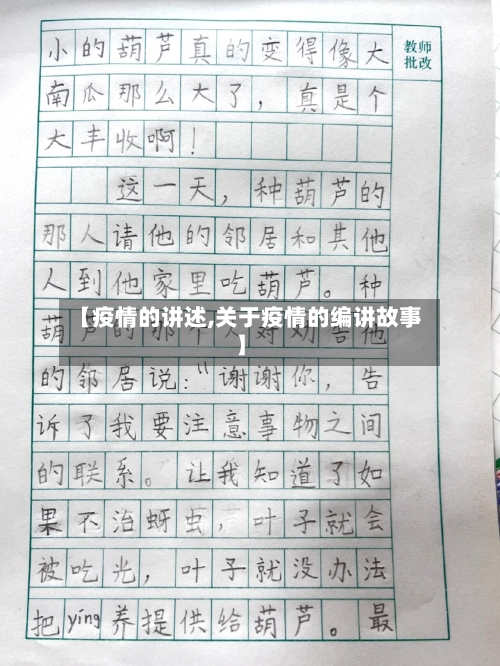 小的葫芦真的变得像大
教师
批改
南瓜那么大了，真是个
大丰收啊！
这一天，种葫芦的
那人请他的邻居和其他
人到他家里吃葫芦。种
【疫情的讲述,关于疫情的编讲故事
】
葫芦的那个人对劝告他
的邻居说："谢谢你，告
诉了我要注意事物之间
的联系。让我知道了如
果不治蚜虫，叶子就会
被吃光，叶子就没办法
把yíng养提供给葫芦。最